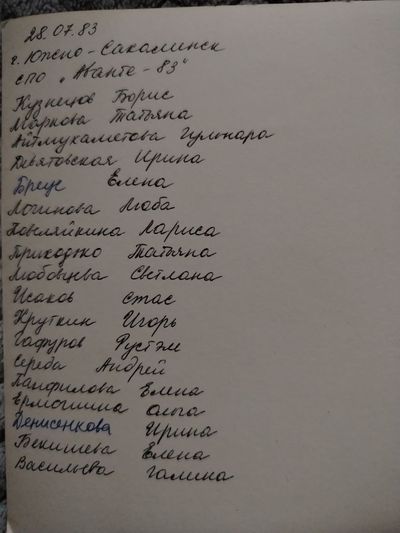 28.07.83
г. Южно-Сахалинск
СПО „Аванте-83"
Кузнецов Борис
Маркова Татьяна
Айтмухаметова Гульнара
Девятовская Ирина
Бреус Елена
Логинова Люба
Повляйкина Лариса
Приходько Татьяна
Любовцева Светлана
Исаков Стас
Круткин Игорь
Гафуров Рустэм
Середа Андрей
Панфилова Елена
Ермошина Ольга
Денисенкова Ирина
Бекишева Елена
Васильева Галина